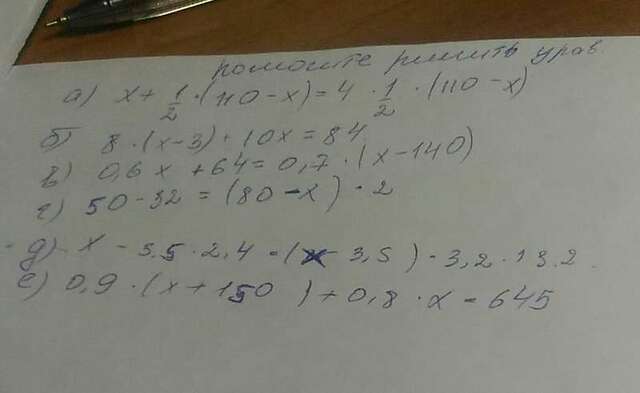 помогите решить урав.
а) x + 1/2 · (110 - x) = 4 · 1/2 · (110 - x)
б) 8 · (x - 3) + 10x = 84
в) 0,6x + 64 = 0,7 · (x - 140)
г) 50 - 32 = (80 - x) · 2
д) x - 3,5 · 2,4 = (x - 3,5) · 3,2 · 13.2.
е) 0,9 · (x + 150) + 0,8 · x = 645